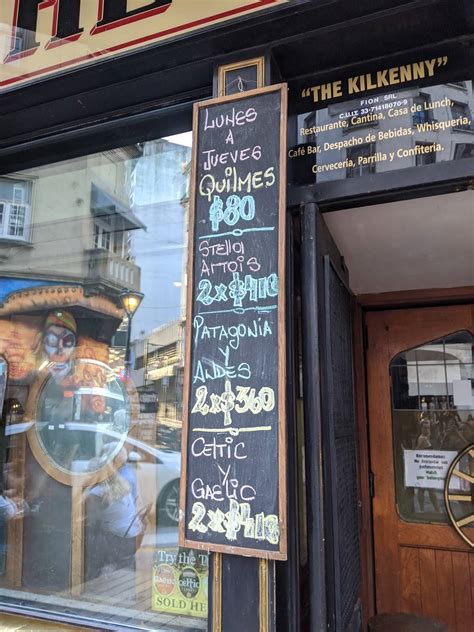 "THE KILKENNY"
FION SRL
C.U.I.T. 33-71418079-9
Restaurante, Cantina, Casa de Lunch,
Café Bar, Despacho de Bebidas, Whisquería,
Cervecería, Parrilla y Confitería.
LUNES
A
JUEVES
QUILMES
$80
Stella
Artois
2x$410
PATAGONIA
Y
ANDES
2x$360
CELTIC
Y
GAELIC
2x$410
Try the
SOLD HERE